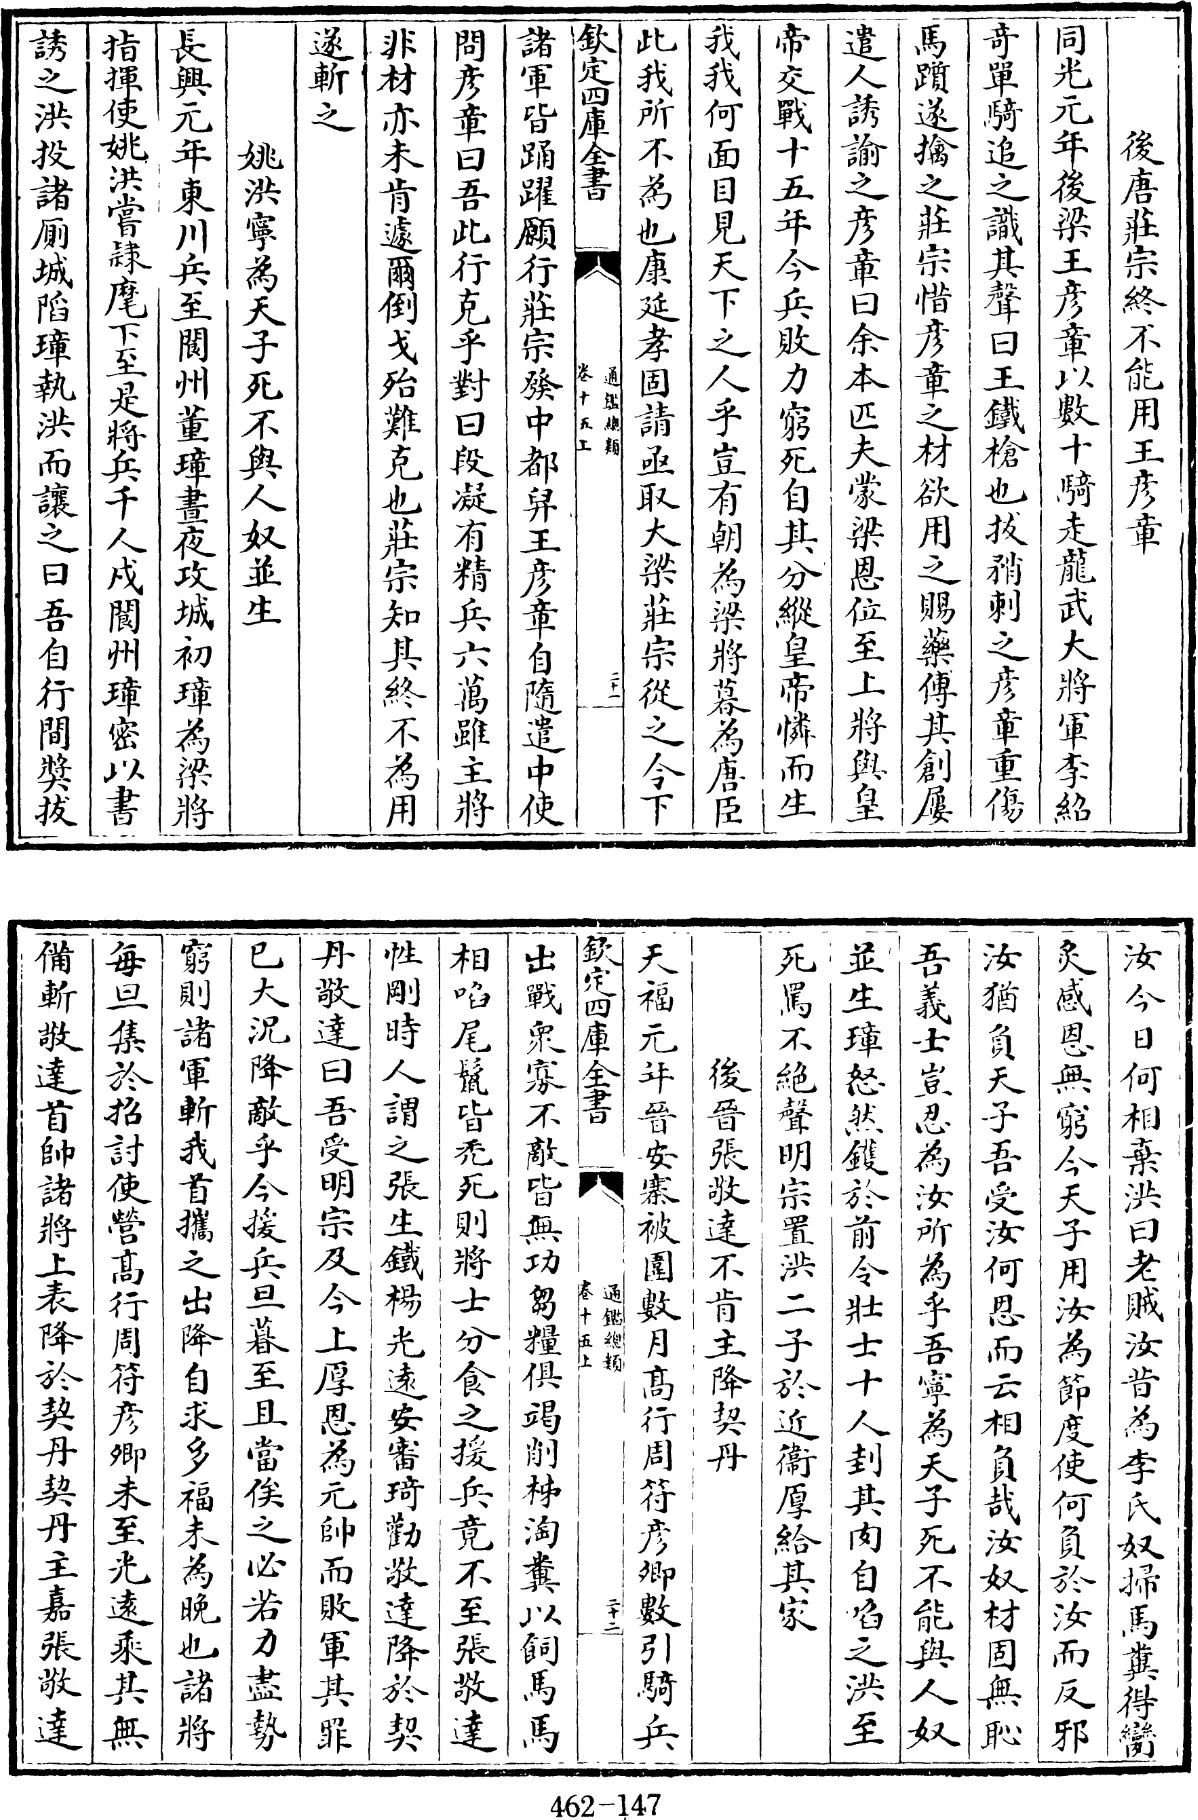 後唐莊宗終不能用王彦章
同光元年後梁王彦章以數十騎走龍武大將軍李紹
奇單騎追之識其聲曰王鐵槍也拔矟刺之彦章重傷
馬躓遂擒之莊宗惜彦章之材欲用之賜藥傅其創屢
遣人誘諭之彦章曰余本匹夫蒙梁恩位至上將與皇
帝交戰十五年今兵敗力窮死自其分縱皇帝憐而生
我我何面目見天下之人乎豈有朝為梁將暮為唐臣
此我所不為也康延孝固請亟取大梁莊宗從之令下
欽定四庫全書
通鑑總類
卷十五上
二十一
諸軍皆踊躍願行莊宗發中都舁王彦章自隨遣中使
問彦章曰吾此行克乎對曰段凝有精兵六萬雖主將
非材亦未肯遽爾倒戈殆難克也莊宗知其終不為用
遂斬之
姚洪寧為天子死不與人奴並生
長興元年東川兵至閬州董璋晝夜攻城初璋為梁將
指揮使姚洪嘗隷麾下至是將兵千人戍閬州璋密以書
誘之洪投諸厠城陷璋執洪而讓之曰吾自行間奬拔
汝今日何相棄洪曰老賊汝昔為李氏奴掃馬糞得臠
炙感恩無窮今天子用汝為節度使何負於汝而反邪
汝猶負天子吾受汝何恩而云相負哉汝奴材固無恥
吾義士豈忍為汝所為乎吾寧為天子死不能與人奴
並生璋怒然鑊於前令壯士十人刲其肉自㗖之洪至
死罵不絶聲明宗置洪二子於近衞厚給其家
後晉張敬達不肯主降契丹
天福元年晉安寨被圍數月髙行周符彦卿數引騎兵
欽定四庫全書
通鑑總類
卷十五上
二十二
出戰衆寡不敵皆無功芻糧俱竭削柹淘糞以飼馬馬
相㗖尾鬛皆秃死則將士分食之援兵竟不至張敬達
性剛時人謂之張生鐵楊光遠安審琦勸敬達降於契
丹敬達曰吾受明宗及今上厚恩為元帥而敗軍其罪
已大況降敵乎今援兵旦暮至且當俟之必若力盡勢
窮則諸軍斬我首攜之出降自求多福未為晚也諸將
每旦集於招討使營髙行周符彦卿未至光遠乘其無
備斬敬達首帥諸將上表降於契丹契丹主嘉張敬達
462-147